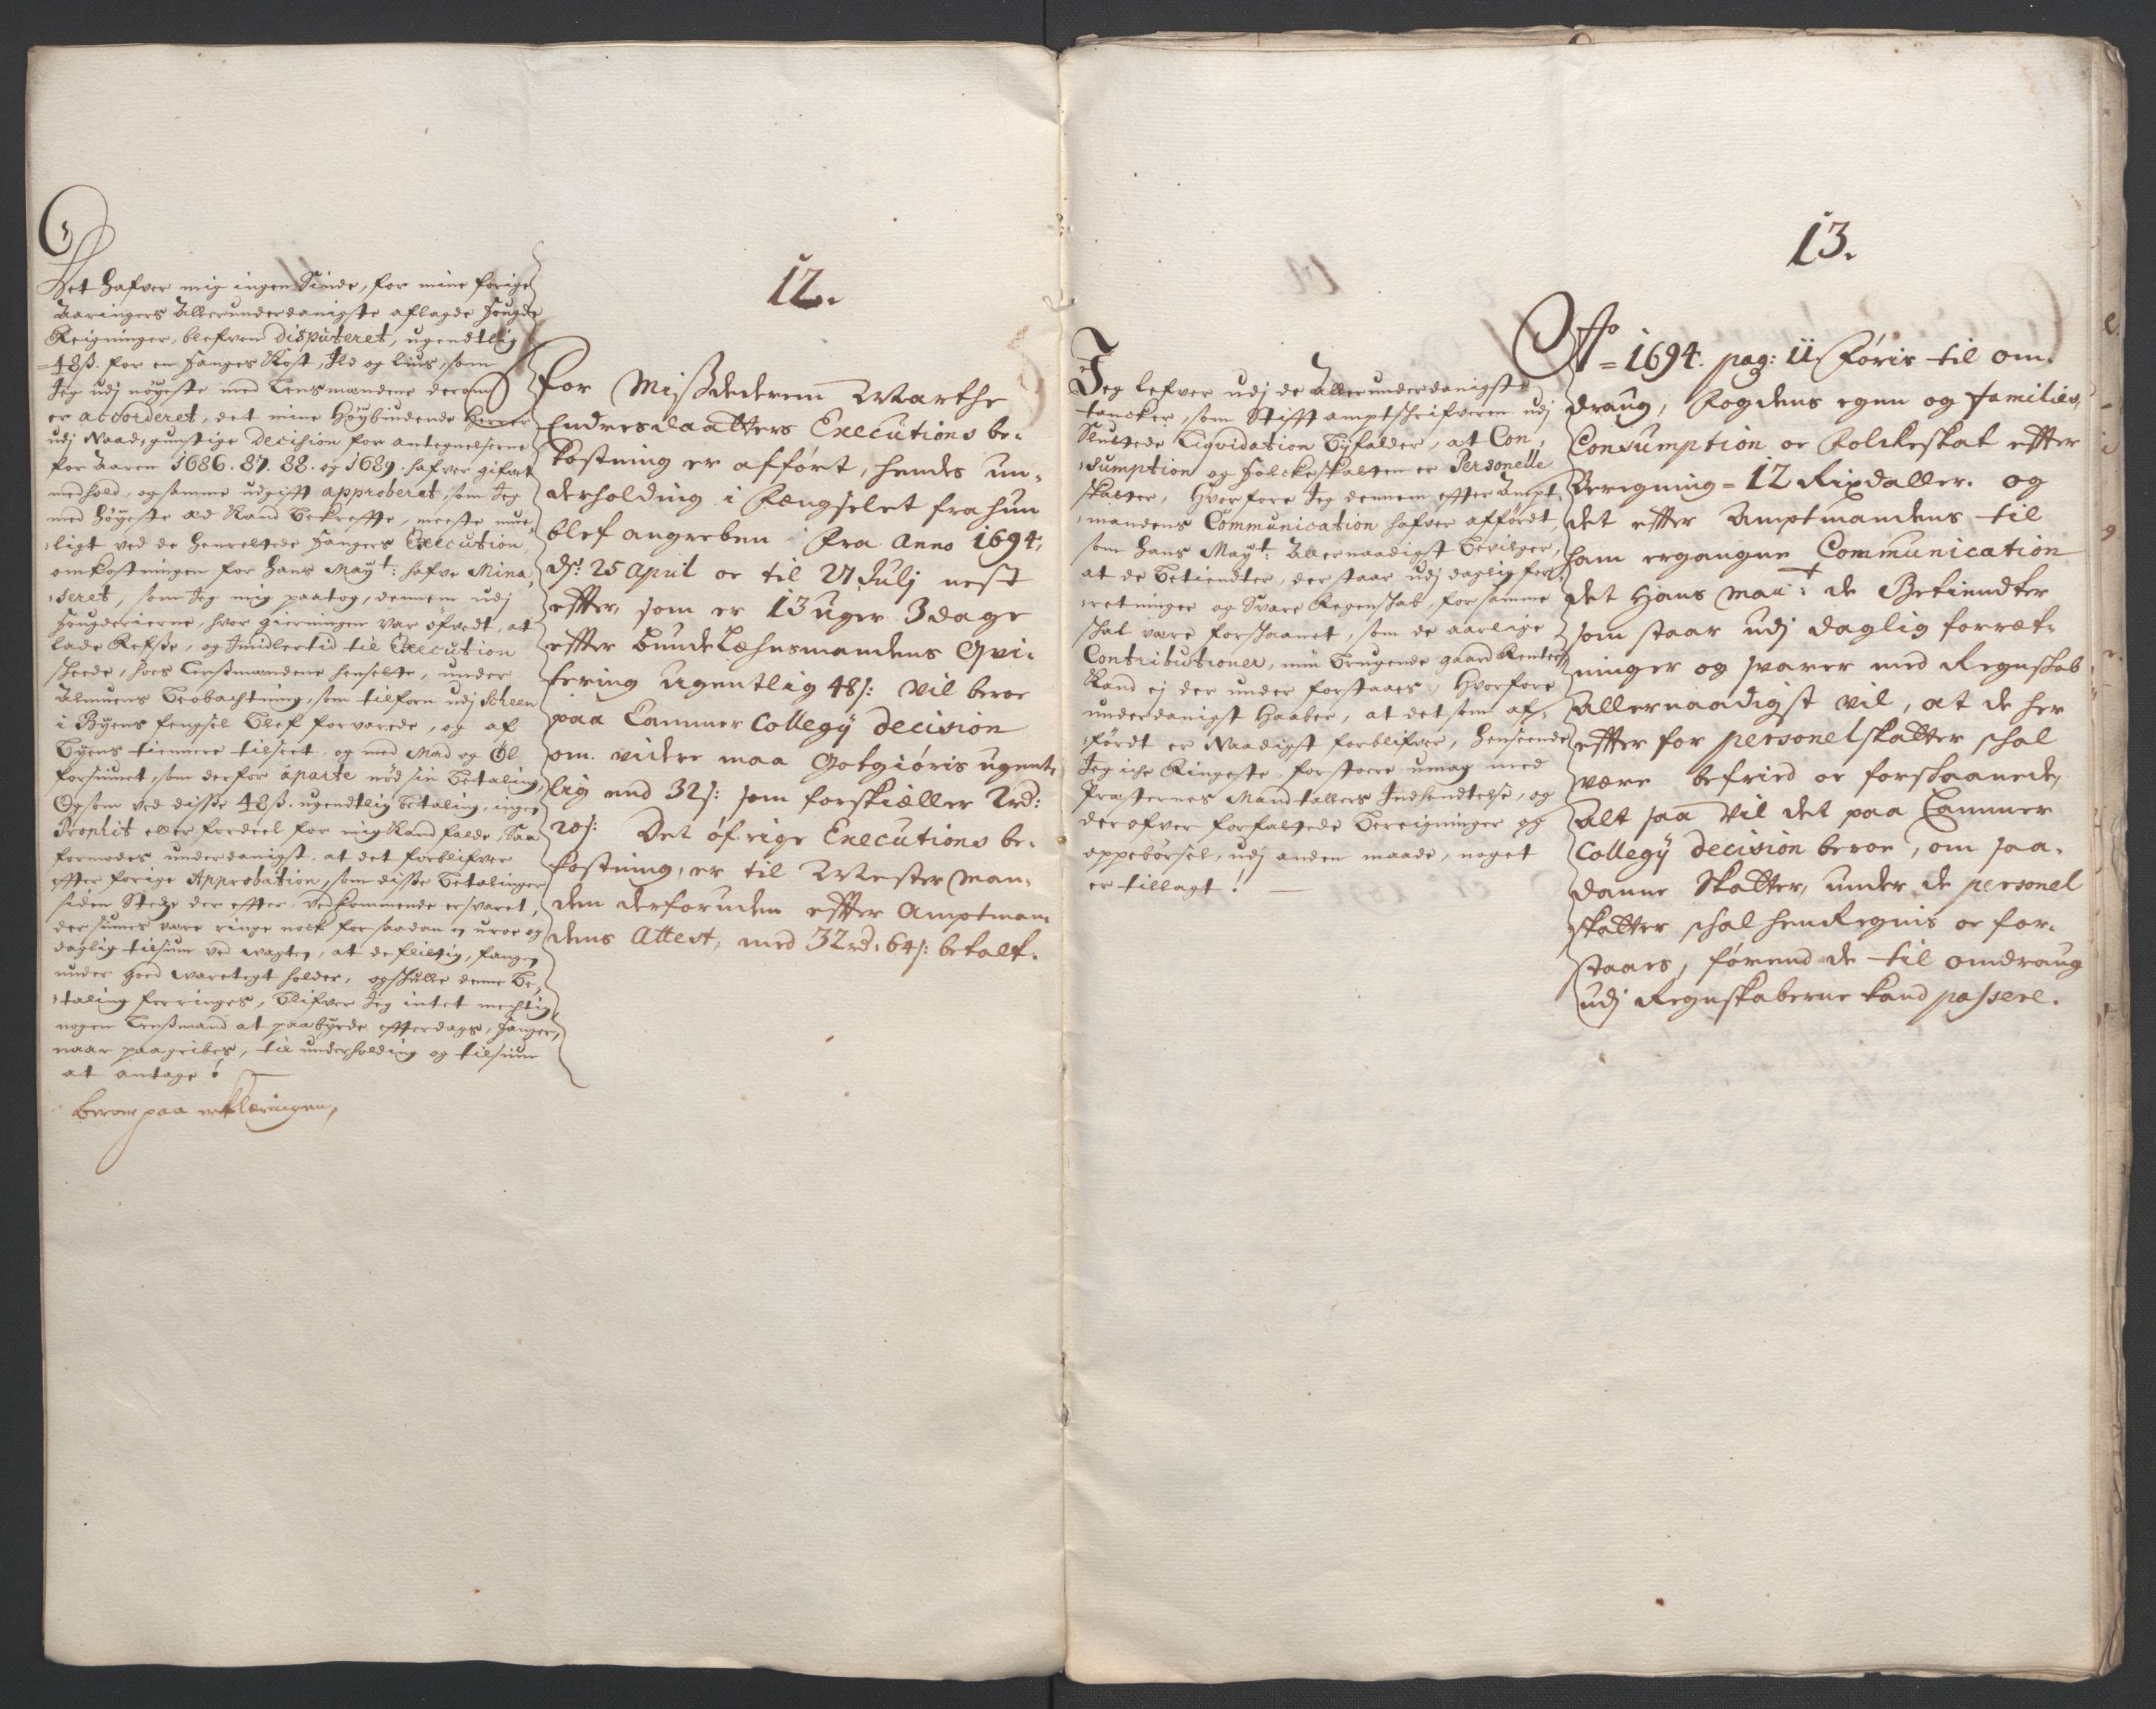 Det hafver mig ingen Sinde, for mine forige
Aaringers Allerunderdanigste aflagde Fougde
Reigninger, blefven disputeret, ugendtlig
48ß. for en fanges Kost, Ild og lius, som
Jeg udj nöyeste med Lensmændene derom
er accorderet, det mine Höybiudende Herrer
udj Naadgunstige Decision for antegnelserne
for Aaren 1686. 87. 88. og 1689. hafver gifvet
medhold, og samme udgifft approberet, som Jeg
med höyeste æd Kand bekreffte, meeste mue¬
ligt ved de henrettede fangers Execution
omkostningen for Hans Mayt: hafve Mina¬
seret, som Jeg mig paatog, dennem udj
fougderierne, hvor gierningen var öfvedt, at
lade Refse, og Imidlertid til Execution
scheede, hoes Lensmændene hensette, under
Almuens Beobachtning, som tilforn udj Scheen
i Byens fengsel blef forvarede, og af
Byens tiennere tilseet, og med Mad og Öl
forsiunet, som derfor àparte nöd sin betaling,
Og som ved disse 48ß. ugendtlig betaling, ingen
Profhit eller fordeel for mig Kand falde, Saa
formodes underdanigst. at det forblifver
effter forige Approbation, som disse betalinger
siden Stedze der effter, vedkommende ersvaret,
der siunes være ringe nock for saadan uroe og
daglig tilsiun ved wagten, at de flittig, fangen
under goed waretegt holder, og schulle denne be¬
taling forringes, blifver Jeg intet mechtig
nogen Lensmand at paabyrde effterdags, fanger,
naar paagribes, til underholding og tilsiun
at antage!
beroer paa erklæringen,
12.
For Missdederem Marthe
Endresdaatters Executions be¬
kostning er afført, hendes un¬
derholding i Fængselet fra hun
blef angreben Fra Anno 1694,
dj: 25 April oc til 27 Julj nest
effter, som er 13 uger 3 dage
effter Bundelæhnsmandens Qvi¬
tering ugentlig 48 s: vil beroe
paa Cammer Collegy decision
om videre maa Gotgiöris ugent¬
lig end 32 s: som forskiæller 2 rd:
20 s: Det öfrige Executions be¬
kostning, er til Mester man¬
den derforuden effter Amptman¬
dens Attest, med 32 rd: 64 s: betalt.
Jeg lefver udj de Allerunderdanigste
tancker, som Stifftamptschrifveren udj
Sluttede Liqvidation byfalder, at Con¬
sumption og Folckeskatten er Personelle
skatter, Hvorfore Jeg dennem effter Ampt¬
mandens Communication hafver affördt,
som Hans Mayt: Allernaadigst bevilger,
at de betiendter, der staar udj daglig for¬
retninger og Svare Regenskab, for samme
skal være forskaanet, som de aarlige
Contributioner, min brugende gaard Renter,
Kand ej der under forstaaes, Hvorfore
underdanigst Haaber, at det som af¬
fördt er Naadigst forblifver, henseende
Jeg iche Ringeste forstoere umag med
Præsternes Mandtallers Indhendtelse, og
der ofver forfattede bereigninger og
oppebörsel, udj anden maade, noget
er tillagt!
13.
Ao 1694. pag: 11 Föris til om¬
draug, Fogdens egen og families,
Consumption oc Folckeskat effter
Beregning 12 Rixdaller. og
det effter Amptmandens til
ham ergangne Communication
det Hans Mait: de Betiendter
som staar udj daglig forret¬
ninger og svarer med Regnskab
Allernaadigst vil, at de her
effter for personel skatter schal
være befried oc forskaanede,
Alt saa vil det paa Cammer
Collegy decision beroe, om saa¬
danne Skatter, under de personel
skatter schal henRegnis oc for¬
staaes, förend de til omdraug
udj Regnskaberne kand passere.